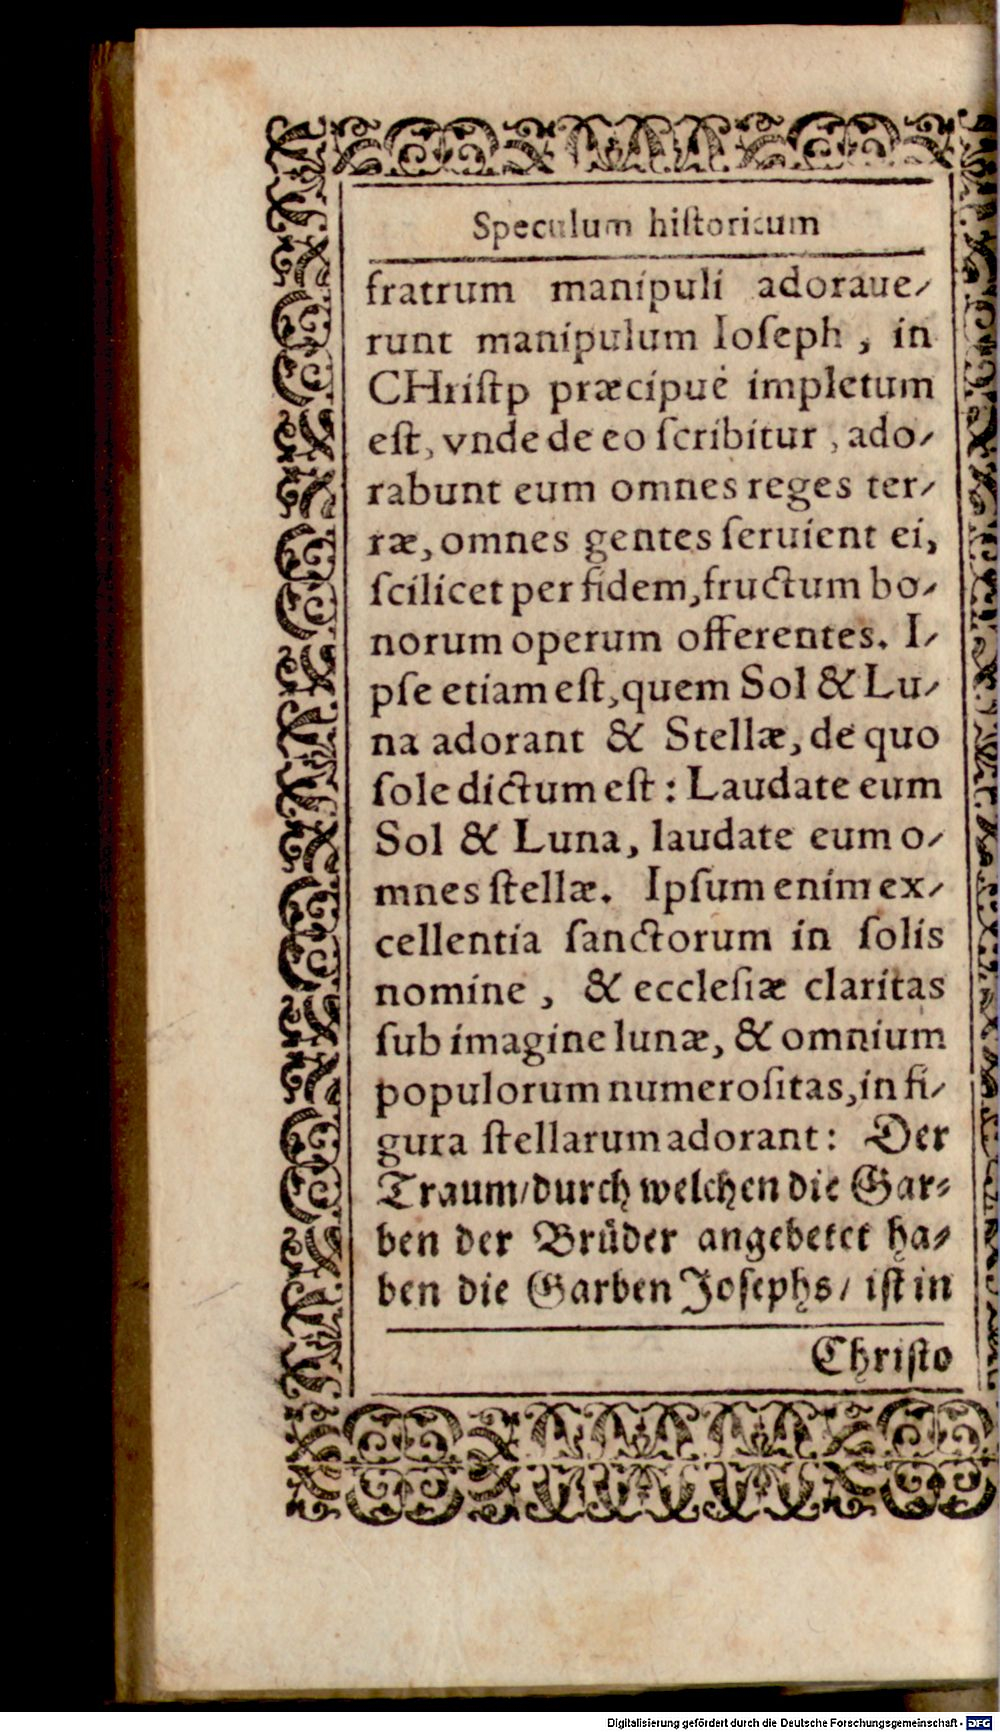 Speculum hiſtoricum
fratrum manipuli adoraue⸗
runt manipulum Ioſeph, in
CHriſtp præcipuè impletum
eſt, vnde de eo ſcribitur, ado⸗
rabunt eum omnes reges ter⸗
ræ, omnes gentes ſeruient ei,
ſcilicet per fidem, fructum bo⸗
norum operum offerentes. I⸗
pſe etiam eſt, quem Sol & Lu⸗
na adorant & Stellæ, de quo
ſole dictum eſt: Laudate eum
Sol & Luna, laudate eum o⸗
mnes ſtellæ. Ipſum enim ex⸗
cellentia ſanctorum in ſolis
nomine, & eccleſiæ claritas
ſub imagine lunæ, & omnium
populorum numeroſitas, in fi⸗
gura ſtellarum adorant: Der
Traum/durch welchen die Gar⸗
ben der Brüder angebetet ha⸗
ben die Garben Joſephs/ iſt in
Chriſto
Digitalisierung gefördert durch die Deutsche Forschungsgemeinschaft - DFG